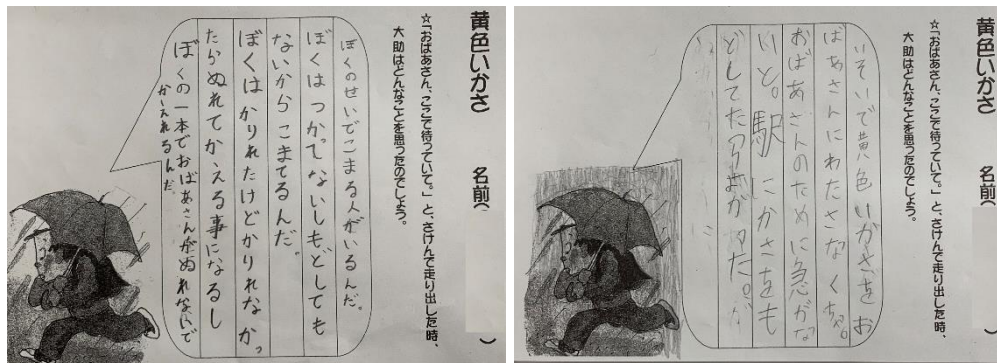 黄色いかさ　名前(　)
☆「おばあさん、ここで待っていて。」と、さけんで走り出した時、
大助はどんなことを思ったのでしょう。
ぼくのせいでこまる人がいるんだ。
ぼくはつかってないしもどしても
ないからこまてるんだ。
ぼくはかりれたけどかりれなかっ
たらぬれてかえる事になるし
ぼくの一本でおばあさんがぬれないで
かえれるんだ。
黄色いかさ　名前(　)
☆「おばあさん、ここで待っていて。」と、さけんで走り出した時、
大助はどんなことを思ったのでしょう。
いそいで黄色いかさをお
ばあさんにわたさなくちゃ。
おばあさんのために急がな
いと。駅にかさをも
どしてた